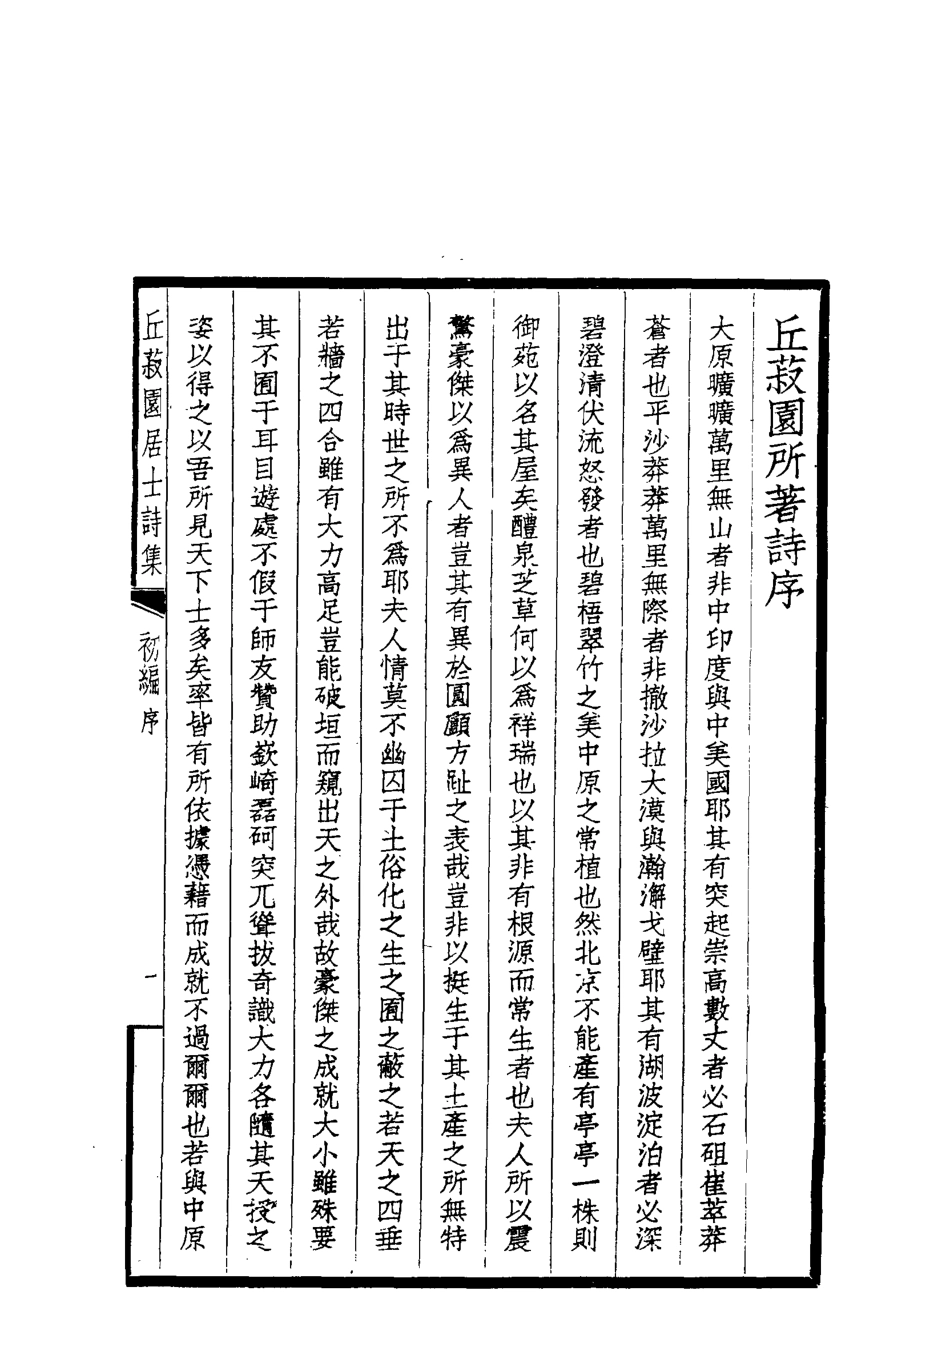 丘菽園所著詩序
大原曠曠萬里無山者非中印度與中美國耶其有突起崇高數丈者必石砠崔萃莽
蒼者也平沙莽莽萬里無際者非撤沙拉大漠與瀚澥戈壁耶其有湖波淀泊者必深
碧澄清伏流怒發者也碧梧翠竹之美中原之常植也然北京不能產有亭亭一株則
御苑以名其屋矣醴泉芝草何以爲祥瑞也以其非有根源而常生者也夫人所以震
驚豪傑以爲異人者豈其有異於圓顱方趾之表哉豈非以挺生于其土產之所無特
出于其時世之所不爲耶夫人情莫不幽囚于土俗化之生之囿之蔽之若天之四垂
若牆之四合雖有大力高足豈能破垣而窺出天之外哉故豪傑之成就大小雖殊要
其不囿于耳目遊處不假于師友贊助嶔崎磊砢突兀聳拔奇識大力各隨其天授之
姿以得之以吾所見天下士多矣率皆有所依據憑藉而成就不過爾爾也若與中原
丘菽園居士詩集 初編 序 一